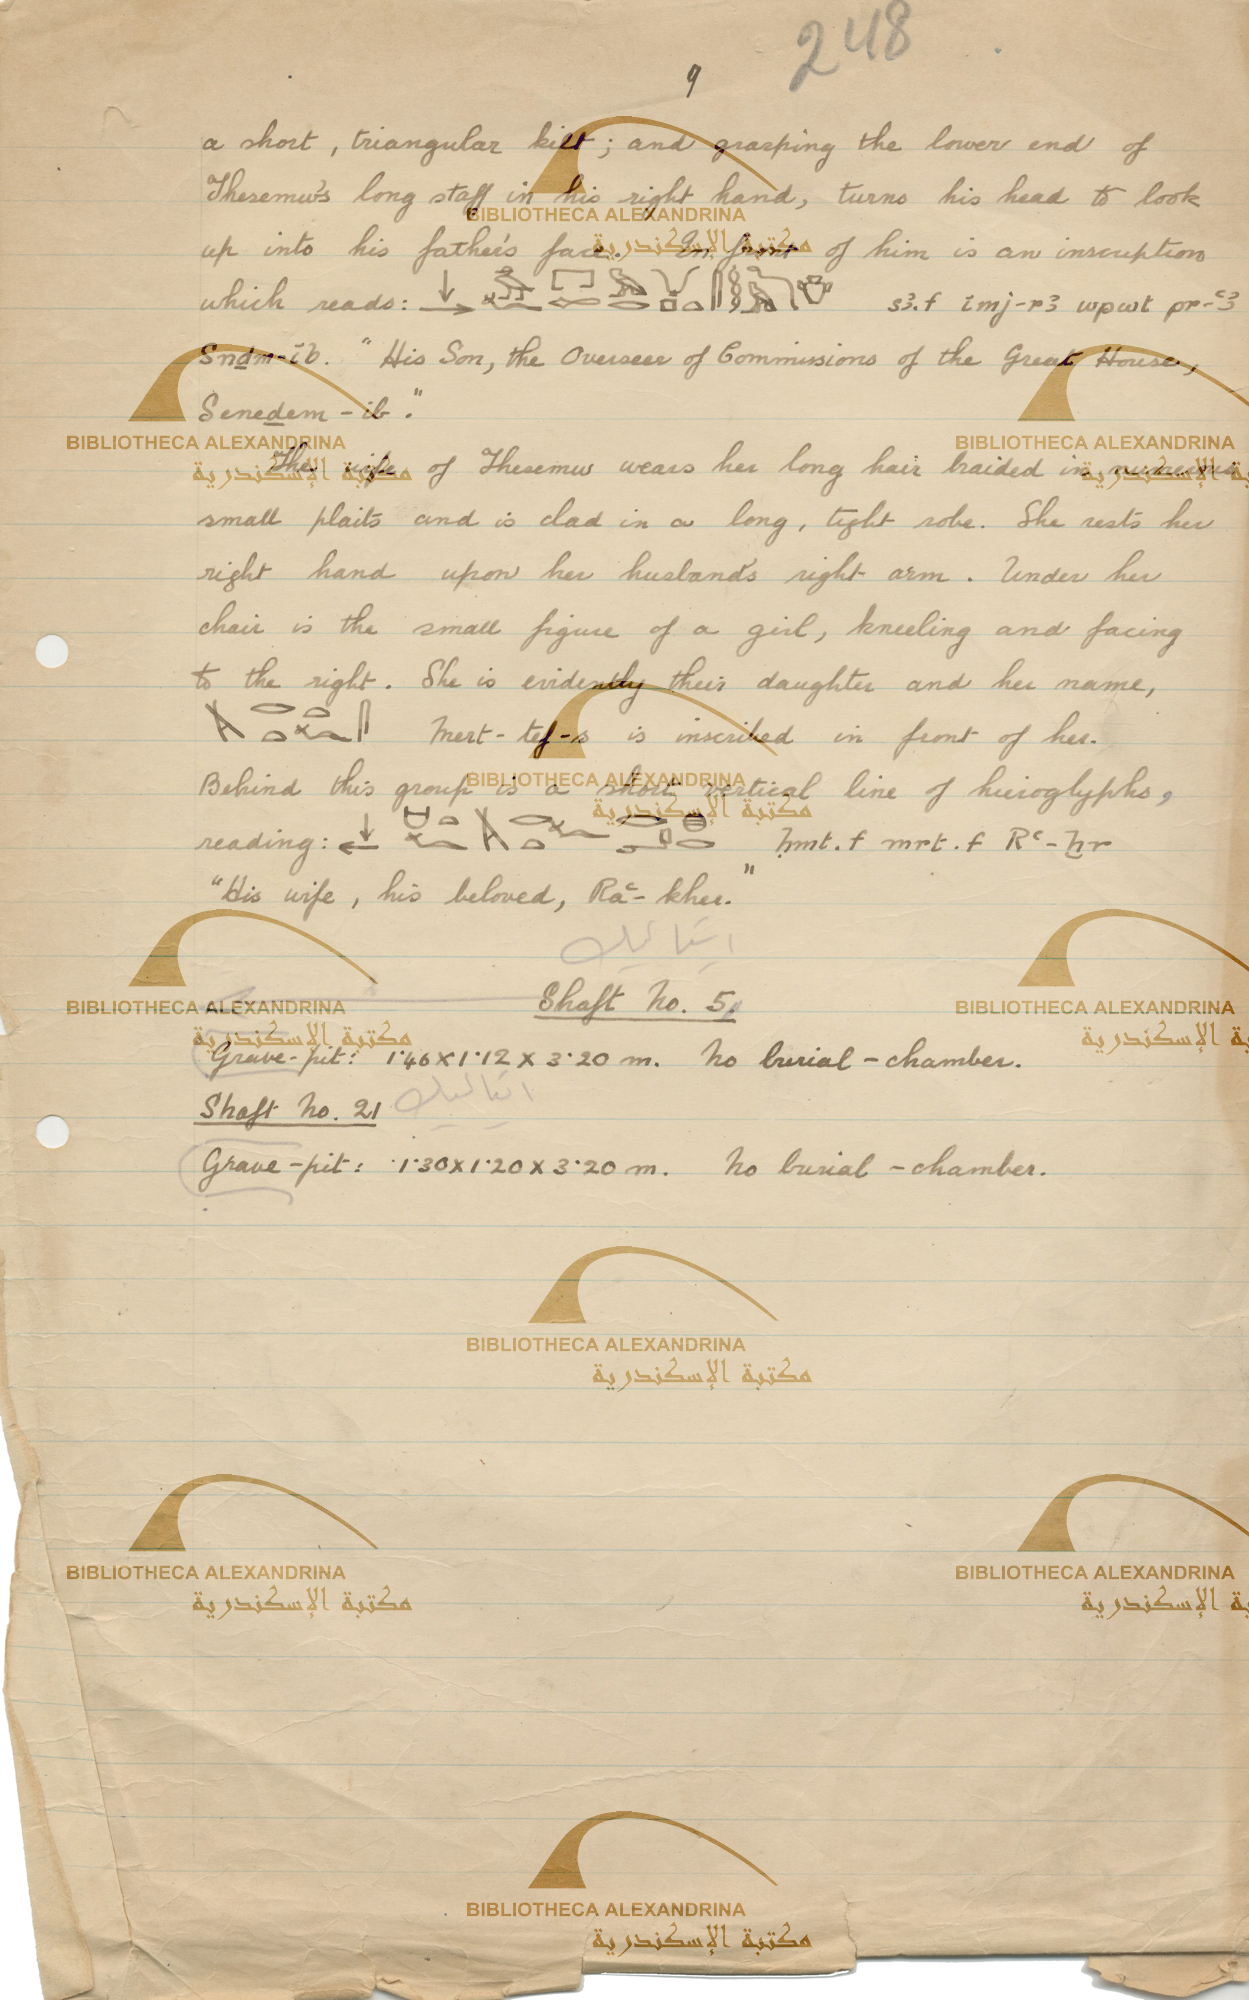 248
9
a short, triangular kilt; and grasping the lower end of
Thesemw's long staff in his right hand, turns his head to look
up into his father's face. In front of him is an inscription
which reads: s3.f imj-r3 wpwt pr-ꜥ3
Sndm-ib. "His Son, the Overseer of Commissions of the Great House,
Senedem-ib."
The wife of Thesemw wears her long hair braided in numerous
small plaits and is clad in a long, tight robe. She rests her
right hand upon her husband's right arm. Under her
chair is the small figure of a girl, kneeling and facing
to the right. She is evidently their daughter and her name,
Mert-tef-s is inscribed in front of her.
Behind this group is a short vertical line of hieroglyphs,
reading: ḥmt.f mrt.f Rꜥ-ḫr
"His wife, his beloved, Raꜥ-kher."
Shaft No. 5
Grave-pit: 1·46 x 1·12 x 3·20 m. No burial-chamber.
Shaft No. 21
Grave-pit: 1·30 x 1·20 x 3·20 m. No burial-chamber.
BIBLIOTHECA ALEXANDRINA
مكتبة الإسكندرية